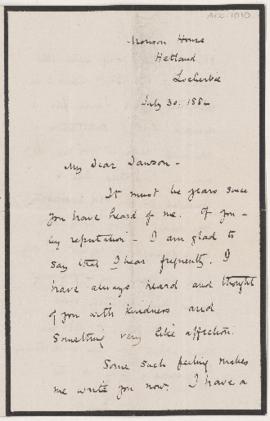 House
Hetland
Lockerbie
July 30. 1884
My Dear Dawson -
It must be years since
you have heard of me. Of you -
by reputation - I am glad to
say that I hear frequently. I
have always heard and thought
of you with kindness and
something very like affection.
Some such feeling makes
me write you now. I have a